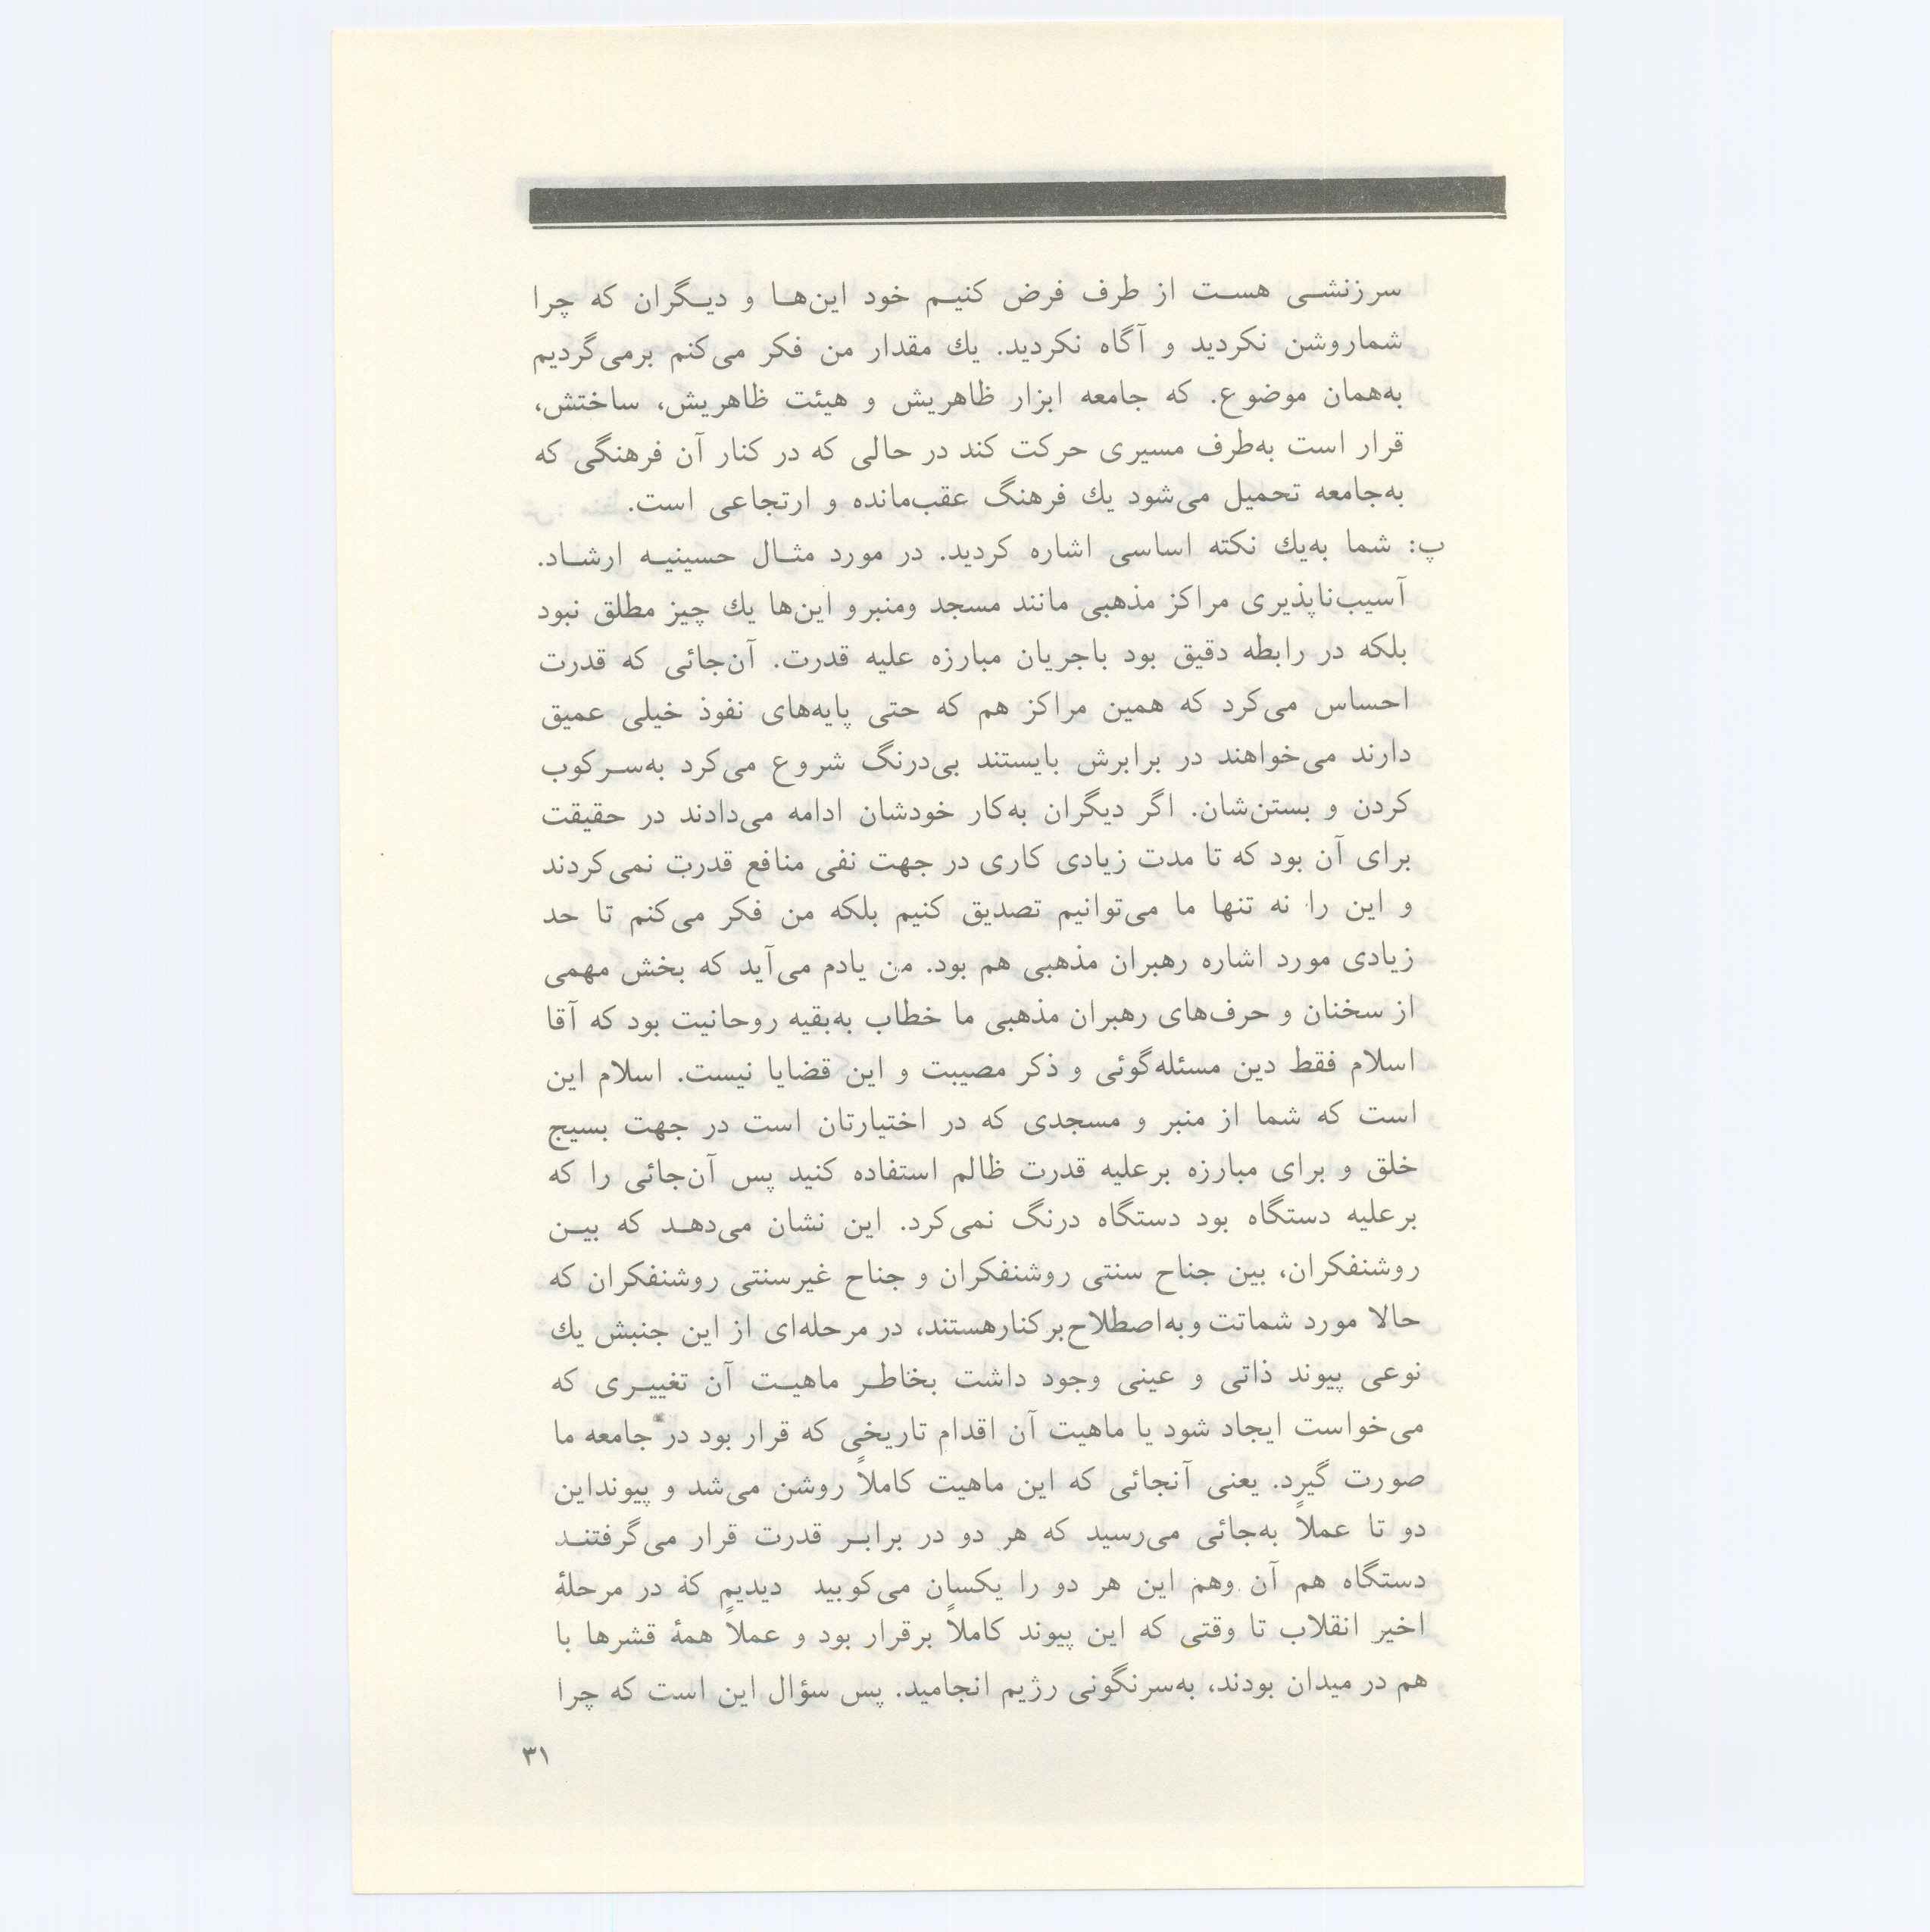 سرزنشی هست از طرف فرض کنیم خود این‌ها و دیگران که چرا
شماروشن نکردید و آگاه نکردید. یك مقدار من فکر می‌کنم برمی‌گردیم
به‌همان موضوع. که جامعه ابزار ظاهریش و هیئت ظاهریش، ساختش،
قرار است به‌طرف مسیری حرکت کند در حالی که در کنار آن فرهنگی که
به‌جامعه تحمیل می‌شود یك فرهنگ عقب‌مانده و ارتجاعی است.
پ: شما به‌یك نکته اساسی اشاره کردید. در مورد مثال حسینیه ارشاد.
آسیب‌ناپذیری مراکز مذهبی مانند مسجد ومنبرو این‌ها یك چیز مطلق نبود
بلکه در رابطه دقیق بود باجریان مبارزه علیه قدرت. آن‌جائی که قدرت
احساس می‌کرد که همین مراکز هم که حتی پایه‌های نفوذ خیلی عمیق
دارند می‌خواهند در برابرش بایستند بی‌درنگ شروع می‌کرد به‌سرکوب
کردن و بستن‌شان. اگر دیگران به‌کار خودشان ادامه می‌دادند در حقیقت
برای آن بود که تا مدت زیادی کاری در جهت نفی منافع قدرت نمی‌کردند
و این را نه تنها ما می‌توانیم تصدیق کنیم بلکه من فکر می‌کنم تا حد
زیادی مورد اشاره رهبران مذهبی هم بود. من یادم می‌آید که بخش مهمی
از سخنان و حرف‌های رهبران مذهبی ما خطاب به‌بقیه روحانیت بود که آقا
اسلام فقط دین مسئله‌گوئی و ذکر مصیبت و این قضایا نیست. اسلام این
است که شما از منبر و مسجدی که در اختیارتان است در جهت بسیج
خلق و برای مبارزه برعلیه قدرت ظالم استفاده کنید پس آن‌جائی را که
برعلیه دستگاه بود دستگاه درنگ نمی‌کرد. این نشان می‌دهد که بین
روشنفکران، بین جناح سنتی روشنفکران و جناح غیرسنتی روشنفکران که
حالا مورد شماتت وبه‌اصطلاح‌برکنارهستند، در مرحله‌ای از این جنبش یك
نوعی پیوند ذاتی و عینی وجود داشت بخاطر ماهیت آن تغییری که
می‌خواست ایجاد شود یا ماهیت آن اقدام تاریخی که قرار بود در جامعه ما
صورت گیرد. یعنی آنجائی که این ماهیت کاملاً روشن می‌شد و پیونداین
دو تا عملاً به‌جائی می‌رسید که هر دو در برابر قدرت قرار می‌گرفتند
دستگاه هم آن وهم این هر دو را یکسان می‌کوبید دیدیم که در مرحلهٔ
اخیر انقلاب تا وقتی که این پیوند کاملاً برقرار بود و عملاً همهٔ قشرها با
هم در میدان بودند، به‌سرنگونی رژیم انجامید. پس سؤال این است که چرا
۳۱